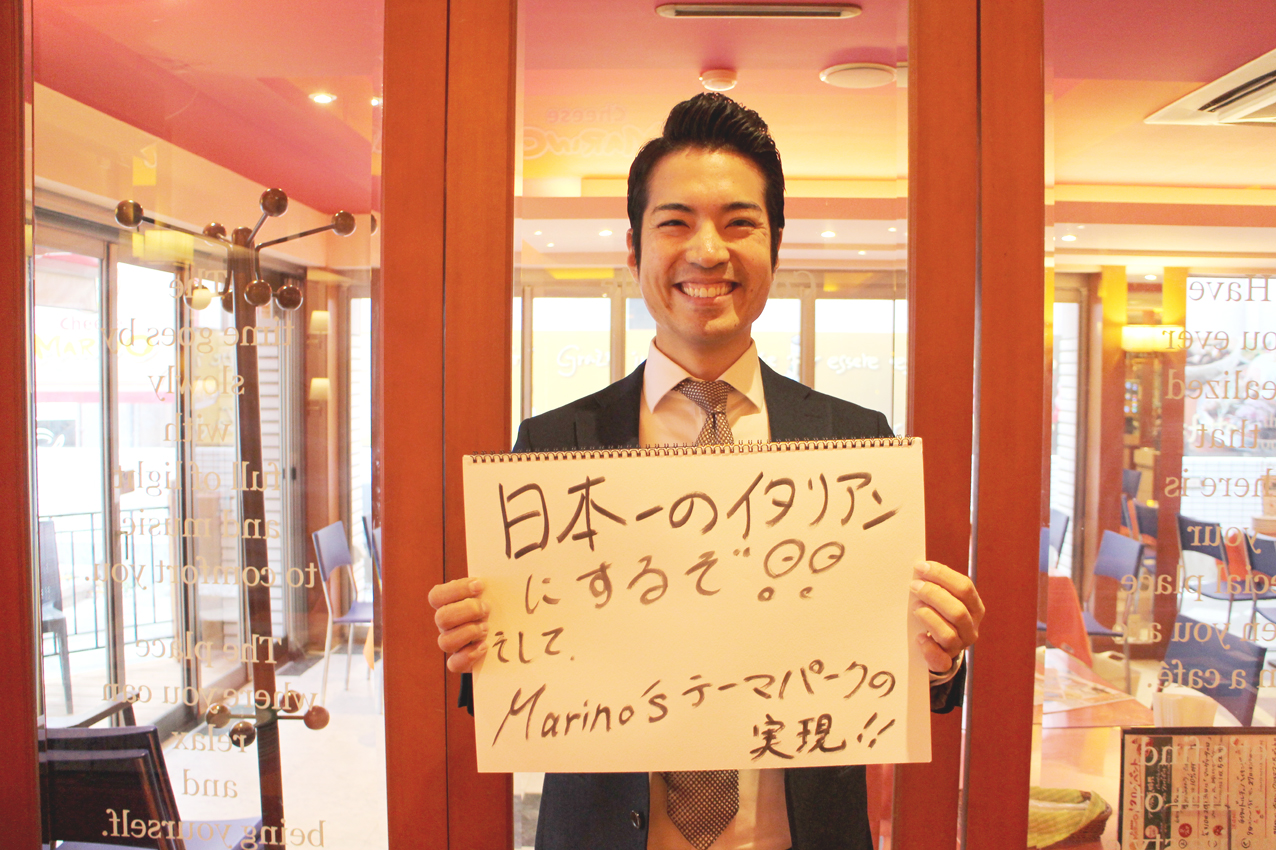 日本一のイタリアン
にするぞ!!
そして、
Marino's テーマパークの
実現!!
Cheese
MARINO
The
time goes by
slowly
with
full of light
and music
to comfort you...
The place
where you can
relax
and
being yourself.
Have
you ever
realized
that
there is
your
special place
when you are
in a café.